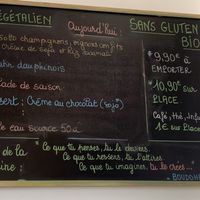 VÉGÉTALIEN
Aujourd'hui :
champignons, oignons confits
crème de soja et
dauphinois
de saison
Crème au chocolat (soja)
eau source 50
de la
Ce que tu penses, tu le deviens.
Ce que tu ressens, tu l'attires.
Ce que tu imagines, tu le crées
BOUDDHA
SANS GLUTEN
BIO
9,90€ à
EMPORTER
10,90€ sur
PLACE
Café, thé,
1€ sur Place